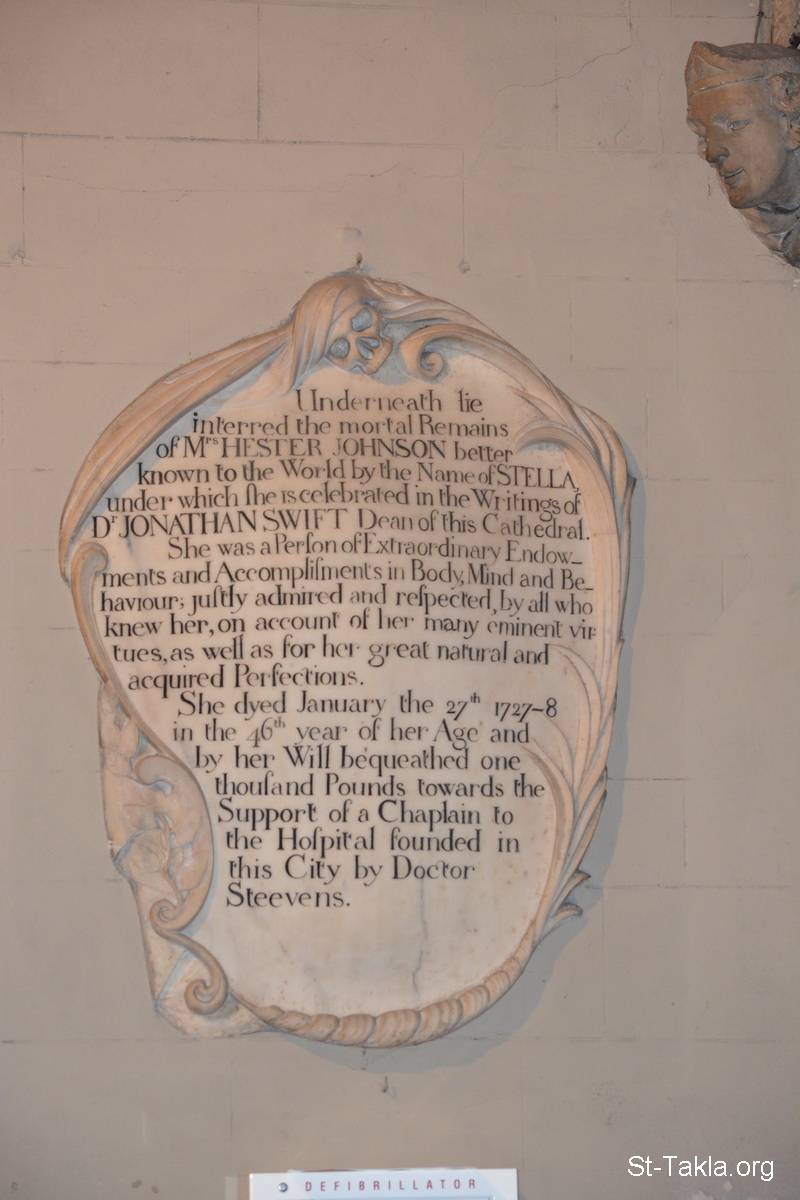 Underneath lie
interred the mortal Remains
of Mrs HESTER JOHNSON better
known to the World by the Name of STELLA,
under which ſhe is celebrated in the Writings of
Dr JONATHAN SWIFT Dean of this Cathedral.
She was a Perſon of Extraordinary Endow-
ments and Accompliſments in Body, Mind and Be-
haviour; juſtly admired and reſpected, by all who
knew her, on account of her many eminent vir-
tues, as well as for her great natural and
acquired Perfections.
She dyed January the 27th 1727-8
in the 46th year of her Age and
by her Will bequeathed one
thouſand Pounds towards the
Support of a Chaplain to
the Hoſpital founded in
this City by Doctor
Steevens.
DEFIBRILLATOR
St-Takla.org